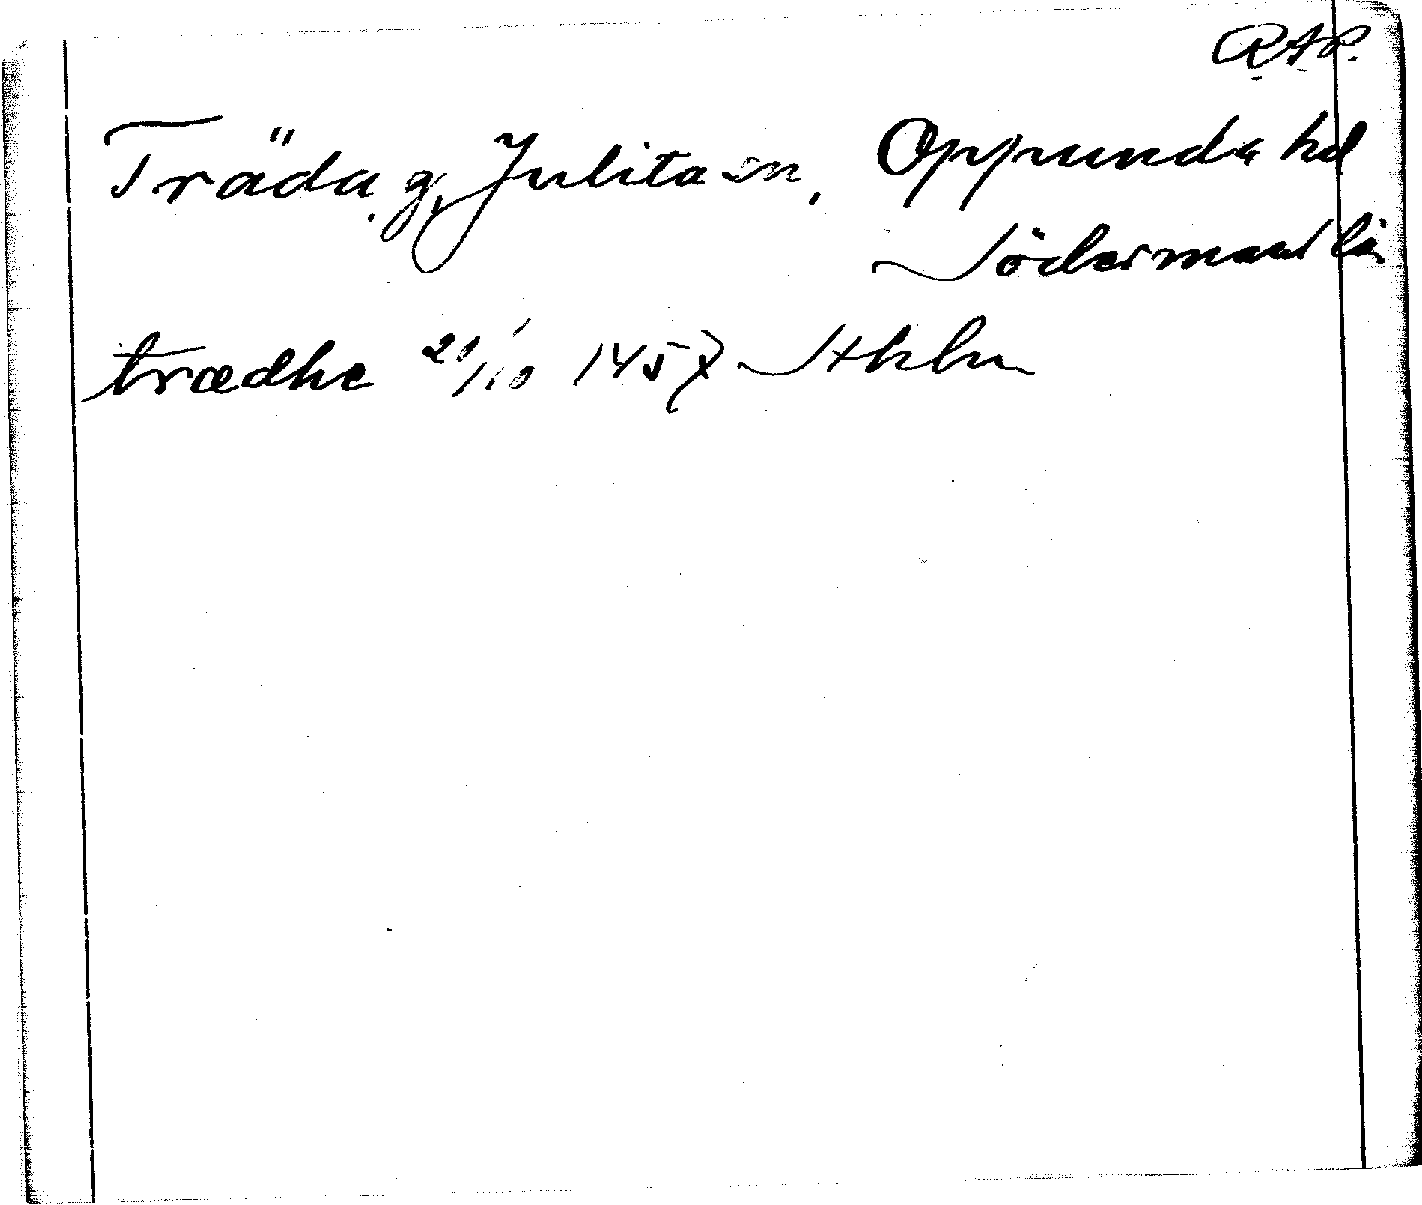 R.A.P.
Träda, g, Julita sn, Oppunda hd
Södermanl lä
trædhe 20/10 1457 Sthlm